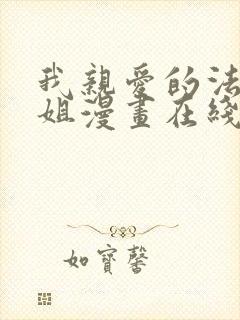 我親愛的法
姐漫畫在綫
如寶馨